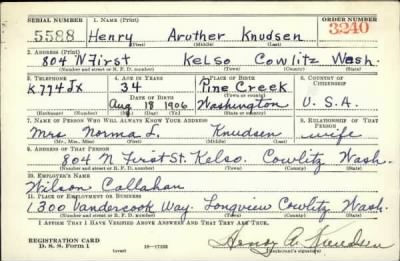 SERIAL NUMBER 1. NAME (Print) ORDER NUMBER
5588 Henry Aruther Knudsen 3240
(First) (Middle) (Last)
2. ADDRESS (Print)
804 N First Kelso Cowlitz Wash.
(Number and street or R. F. D. number) (Town) (County) (State)
3. TELEPHONE 4. AGE IN YEARS 5. PLACE OF BIRTH 6. COUNTRY OF CITIZENSHIP
34 Pine Creek
K774Jx DATE OF BIRTH (Town or county)
Aug 18 1906 Washington U. S. A.
(Exchange) (Number) (Mo.) (Day) (Yr.) (State or country)
7. NAME OF PERSON WHO WILL ALWAYS KNOW YOUR ADDRESS 8. RELATIONSHIP OF THAT PERSON
Mrs Norma L. Knudsen wife
(Mr., Mrs., Miss) (First) (Middle) (Last)
9. ADDRESS OF THAT PERSON
804 N First St. Kelso. Cowlitz Wash.
(Number and street or R. F. D. number) (Town) (County) (State)
10. EMPLOYER'S NAME
Wilson Callahan
11. PLACE OF EMPLOYMENT OR BUSINESS
1300 Vandercook Way. Longview Cowlitz Wash.
(Number and street or R. F. D. number) (Town) (County) (State)
I AFFIRM THAT I HAVE VERIFIED ABOVE ANSWERS AND THAT THEY ARE TRUE.
REGISTRATION CARD Henry A. Knudsen
D. S. S. Form 1 (over) 16-17105 (Registrant's signature)